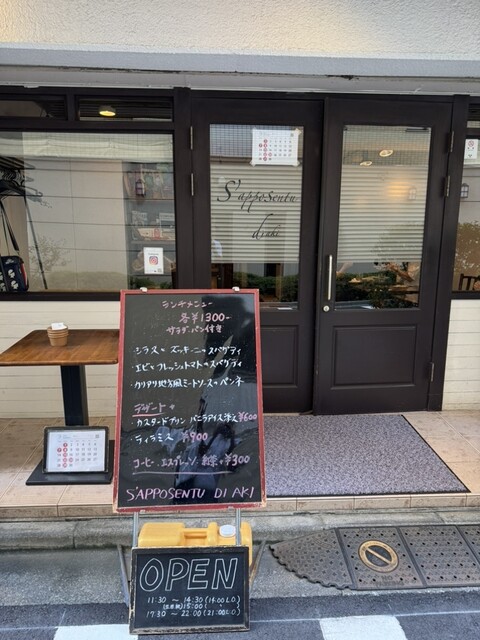 S'apposentu
di aki
ランチメニュー
各¥1300-
サラダ・パン付き
・シラスのズッキーニのスパゲティ
・エビとフレッシュトマトのスパゲティ
・カリアリ地方風ミートソースのペンネ
デザート
・カスタードプリン バニラアイス添え¥600
・ティラミス ¥900
コーヒー・エスプレッソ・紅茶 ¥300
S'APPOSENTU DI AKI
OPEN
11:30 ~ 14:30(14:00L.O.)
15:00
17:30 ~ 22:00(21:00L.O.)